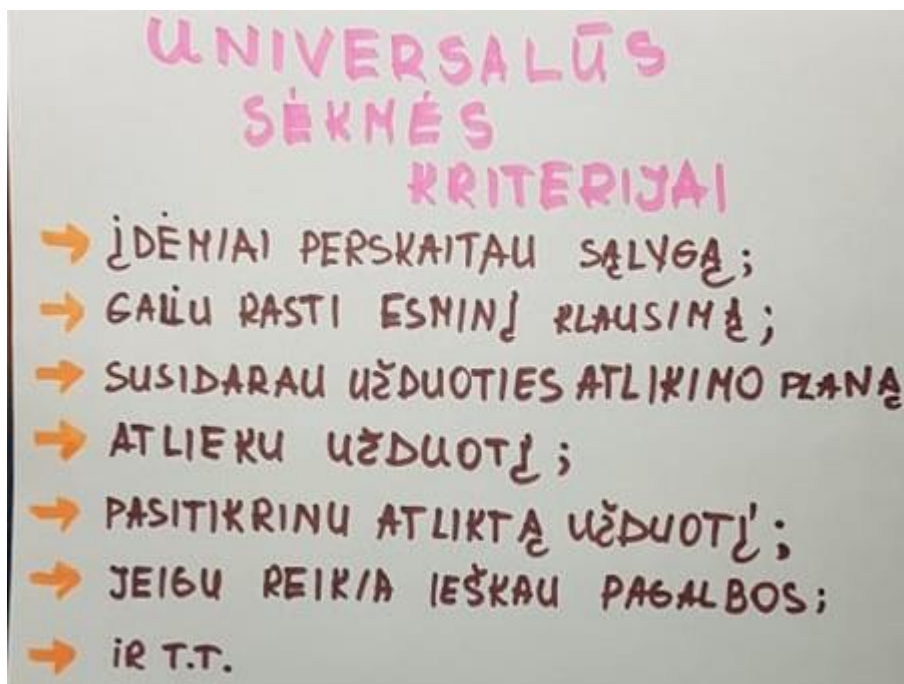 UNIVERSALŪS
SĖKMĖS
KRITERIJAI
→ ĮDĖMIAI PERSKAITAU SĄLYGĄ;
→ GALIU RASTI ESMINĮ KLAUSIMĄ;
→ SUSIDARAU UŽDUOTIES ATLIKIMO PLANĄ
→ ATLIEKU UŽDUOTĮ;
→ PASITIKRINU ATLIKTĄ UŽDUOTĮ;
→ JEIGU REIKIA IEŠKAU PAGALBOS;
→ IR T.T.